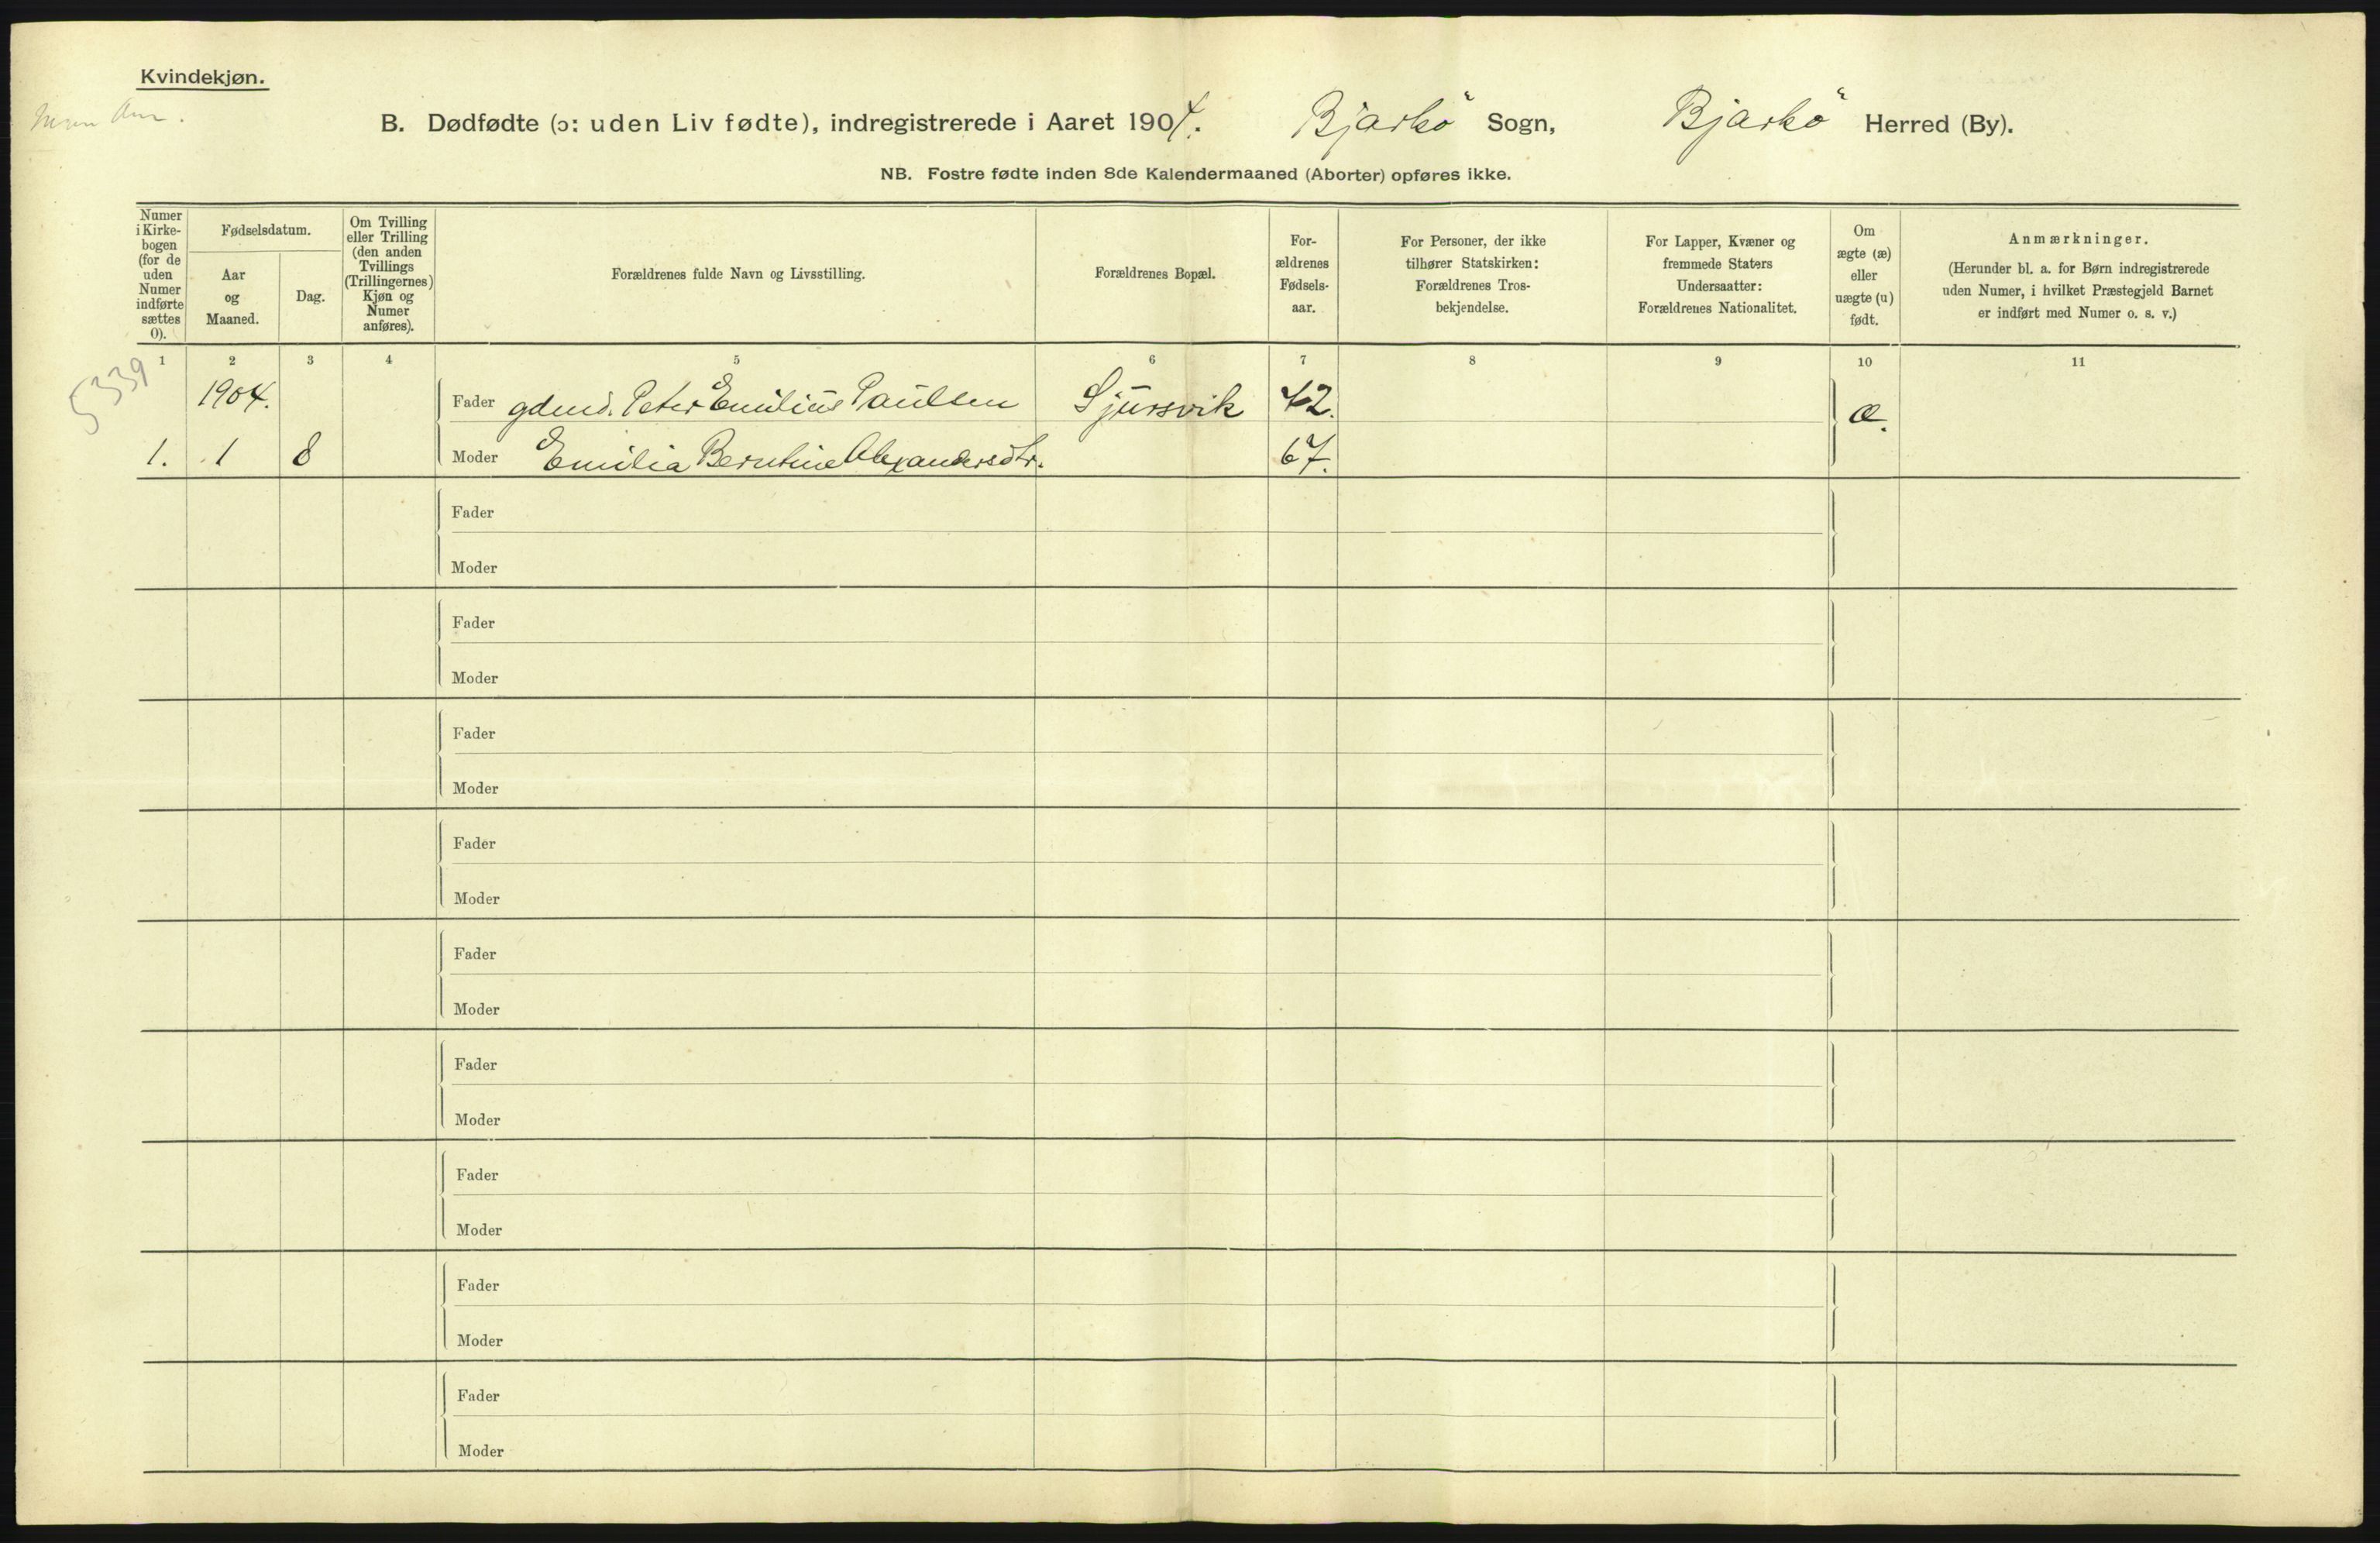 Kvindekjøn.
B. Dødfødte (ɔ: uden Liv fødte), indregistrerede i Aaret 1904. Bjarkö Sogn, Bjarkö Herred (By).
NB. Fostre fødte inden 8de Kalendermaaned (Aborter) opføres ikke.
Numer
i Kirke-
bogen
(for de
uden
Numer
indførte
sættes
0).
Fødselsdatum.
Aar
og
Maaned.
Dag.
Om Tvilling
eller Trilling
(den anden
Tvillings
(Trillingernes)
Kjøn og
Numer
anføres).
Forældrenes fulde Navn og Livsstilling.
Forældrenes Bopæl.
For-
ældrenes
Fødsels-
aar.
For Personer, der ikke
tilhører Statskirken:
Forældrenes Tros-
bekjendelse.
For Lapper, Kvæner og
fremmede Staters
Undersaatter:
Forældrenes Nationalitet.
Om
ægte (æ)
eller
uægte (u)
født.
Anmærkninger.
(Herunder bl. a. for Børn indregistrerede
uden Numer, i hvilket Præstegjeld Barnet
er indført med Numer o. s. v.)
1 2 3 4 5 6 7 8 9 10 11
5339
1904. Fader gdmd. Peter Emilius Paulsen Sjursvik 42. æ.
1. 1 8 Moder Emilia Berntine Alexandersdtr. 67.
Fader
Moder
Fader
Moder
Fader
Moder
Fader
Moder
Fader
Moder
Fader
Moder
Fader
Moder
Fader
Moder
Fader
Moder